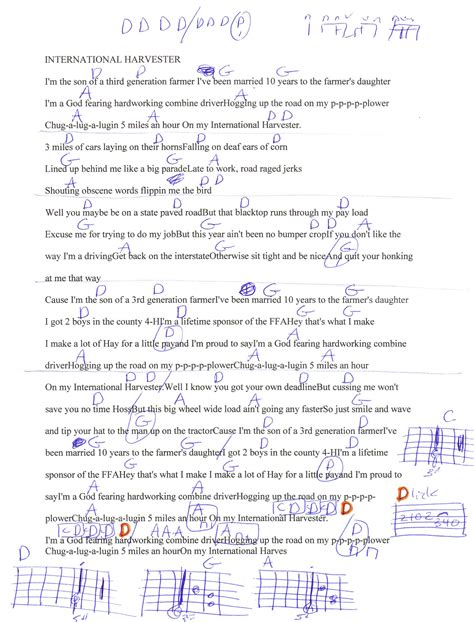 D D D D / D D D D
INTERNATIONAL HARVESTER
D D G G
I'm the son of a third generation farmer I've been married 10 years to the farmer's daughter
A
I'm a God fearing hardworking combine driverHogging up the road on my p-p-p-p-plower
A A D D
Chug-a-lug-a-lugin 5 miles an hour On my International Harvester.
D D
3 miles of cars laying on their hornsFalling on deaf ears of corn
G A
Lined up behind me like a big paradeLate to work, road raged jerks
A D
Shouting obscene words flippin me the bird
D D
Well you maybe be on a state paved roadBut that blacktop runs through my pay load
G G A
Excuse me for trying to do my jobBut this year ain't been no bumper cropIf you don't like the
A D G
way I'm a drivingGet back on the interstateOtherwise sit tight and be niceAnd quit your honking
at me that way
D D G G
Cause I'm the son of a 3rd generation farmerI've been married 10 years to the farmer's daughter
G A A
I got 2 boys in the county 4-HI'm a lifetime sponsor of the FFAHey that's what I make
D
I make a lot of Hay for a little payand I'm proud to sayI'm a God fearing hardworking combine
A A
driverHogging up the road on my p-p-p-p-plowerChug-a-lug-a-lugin 5 miles an hour
D D D D
On my International Harvester.Well I know you got your own deadlineBut cussing me won't
G A A
save you no time HossBut this big wheel wide load ain't going any fasterSo just smile and wave
G D D
and tip your hat to the man up on the tractorCause I'm the son of a 3rd generation farmerI've
G G A
been married 10 years to the farmer's daughterI got 2 boys in the county 4-HI'm a lifetime
A D
sponsor of the FFAHey that's what I make I make a lot of Hay for a little payand I'm proud to
A
sayI'm a God fearing hardworking combine driverHogging up the road on my p-p-p-p-
A A
plowerChug-a-lug-a-lugin 5 miles an hour On my International Harvester.
D A A A
I'm a God fearing hardworking combine driverHogging up the road on my p-p-p-p-plower
Chug-a-lug-a-lugin 5 miles an hourOn my International Harves
C
D lick
D G A